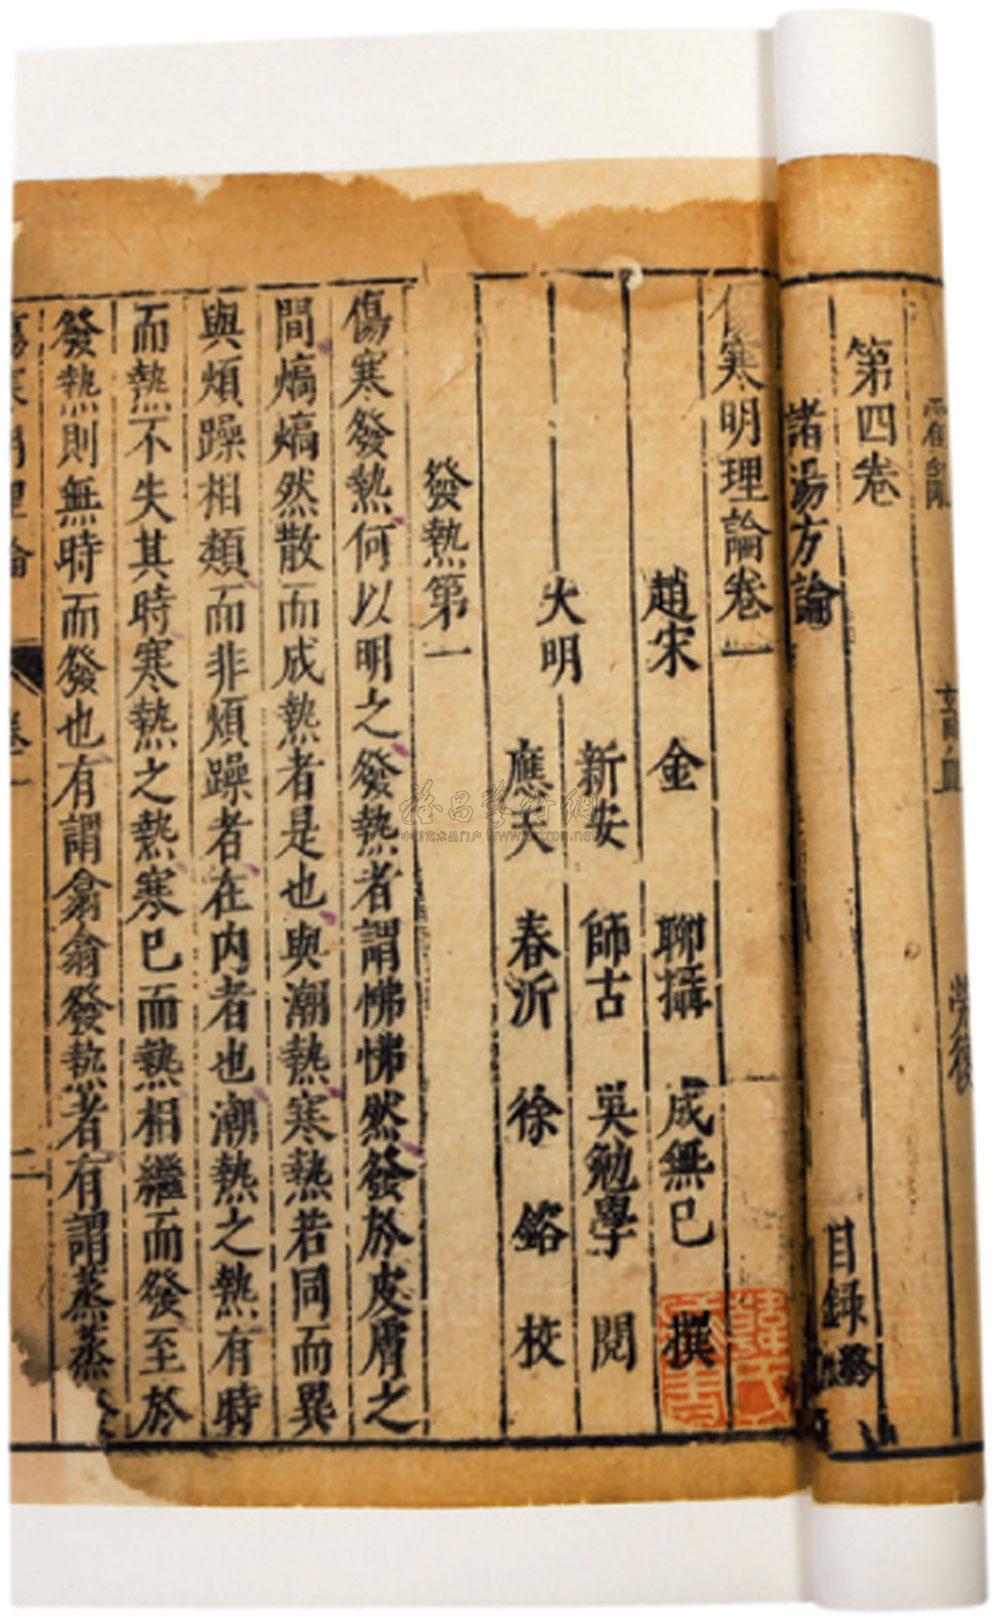 第四卷
諸湯方論
目錄終
傷寒明理論卷一
趙宋 金 聊攝 成無已 撰
大明 新安 師古 吳勉學 閱
應天 春沂 徐鎔 校
發熱第一
傷寒發熱何以明之發熱者謂怫怫然發於皮膚之
間熇熇然散而成熱者是也與潮熱寒熱若同而異
與煩躁相類而非煩躁者在内者也潮熱之熱有時
而熱不失其時寒熱之熱寒已而熱相繼而發至於
發熱則無時而發也有謂翕翕發熱者有謂蒸蒸
傷寒明理論 卷一 二